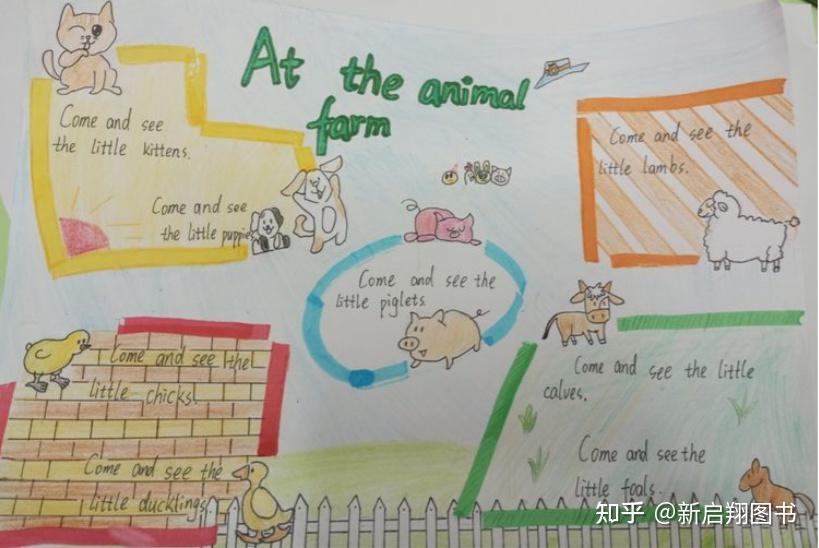 At the animal
farm
Come and see
the little kittens.
Come and see
the little puppie
Come and see the
little lambs.
Come and see the
little piglets.
Come and see the
little chicks!
Come and see the
little ducklings
Come and see the little
calves.
Come and see the
little foals.
知乎 @新启翔图书